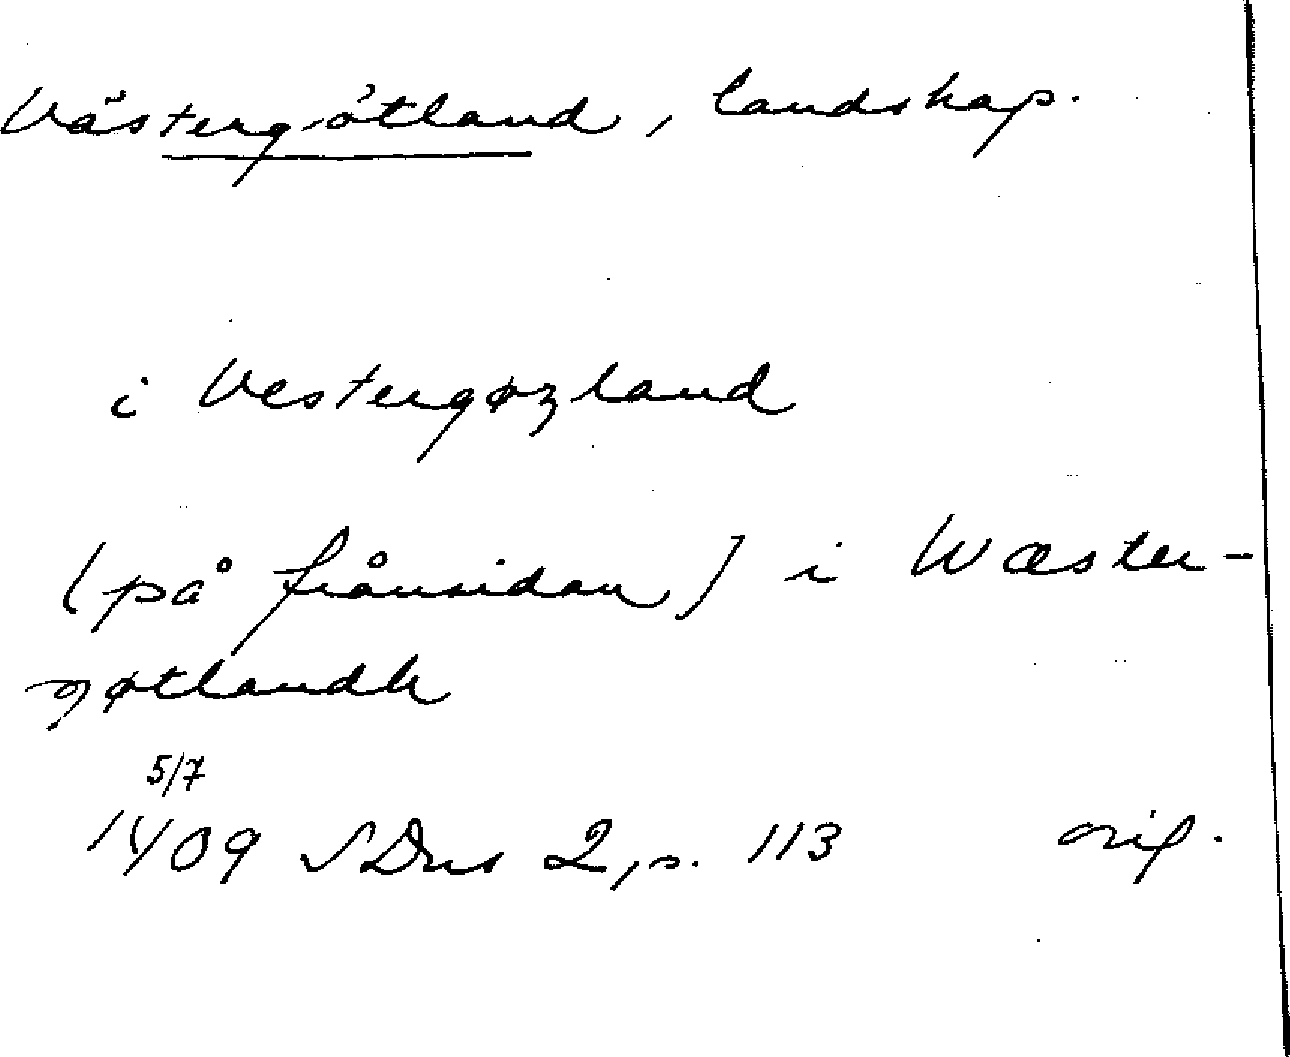 Västergötland, landskap.
i Vestergøzland
(på frånsidan) i Wæster-
gøtlandh
5/7
1409 SDns 2, s. 113 orig.